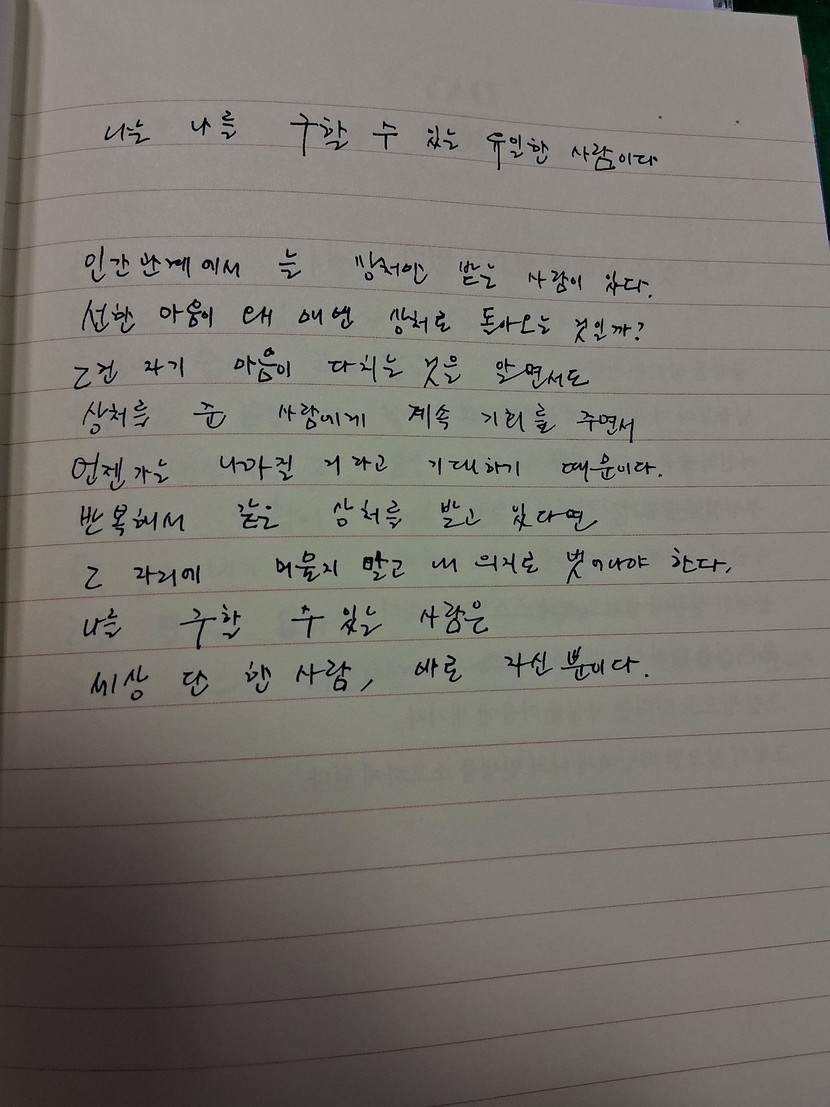 나는 나를 구할 수 있는 유일한 사람이다
인간관계에서 늘 상처만 받는 사람이 있다.
선한 마음이 왜 매번 상처로 돌아오는 것일까?
그건 자기 마음이 다치는 것을 알면서도
상처를 준 사람에게 계속 기회를 주면서
언젠가는 나아질 거라고 기대하기 때문이다.
반복해서 같은 상처를 받고 있다면
그 자리에 머물지 말고 내 의지로 벗어나야 한다.
나를 구할 수 있는 사람은
세상 단 한 사람, 바로 자신 뿐이다.